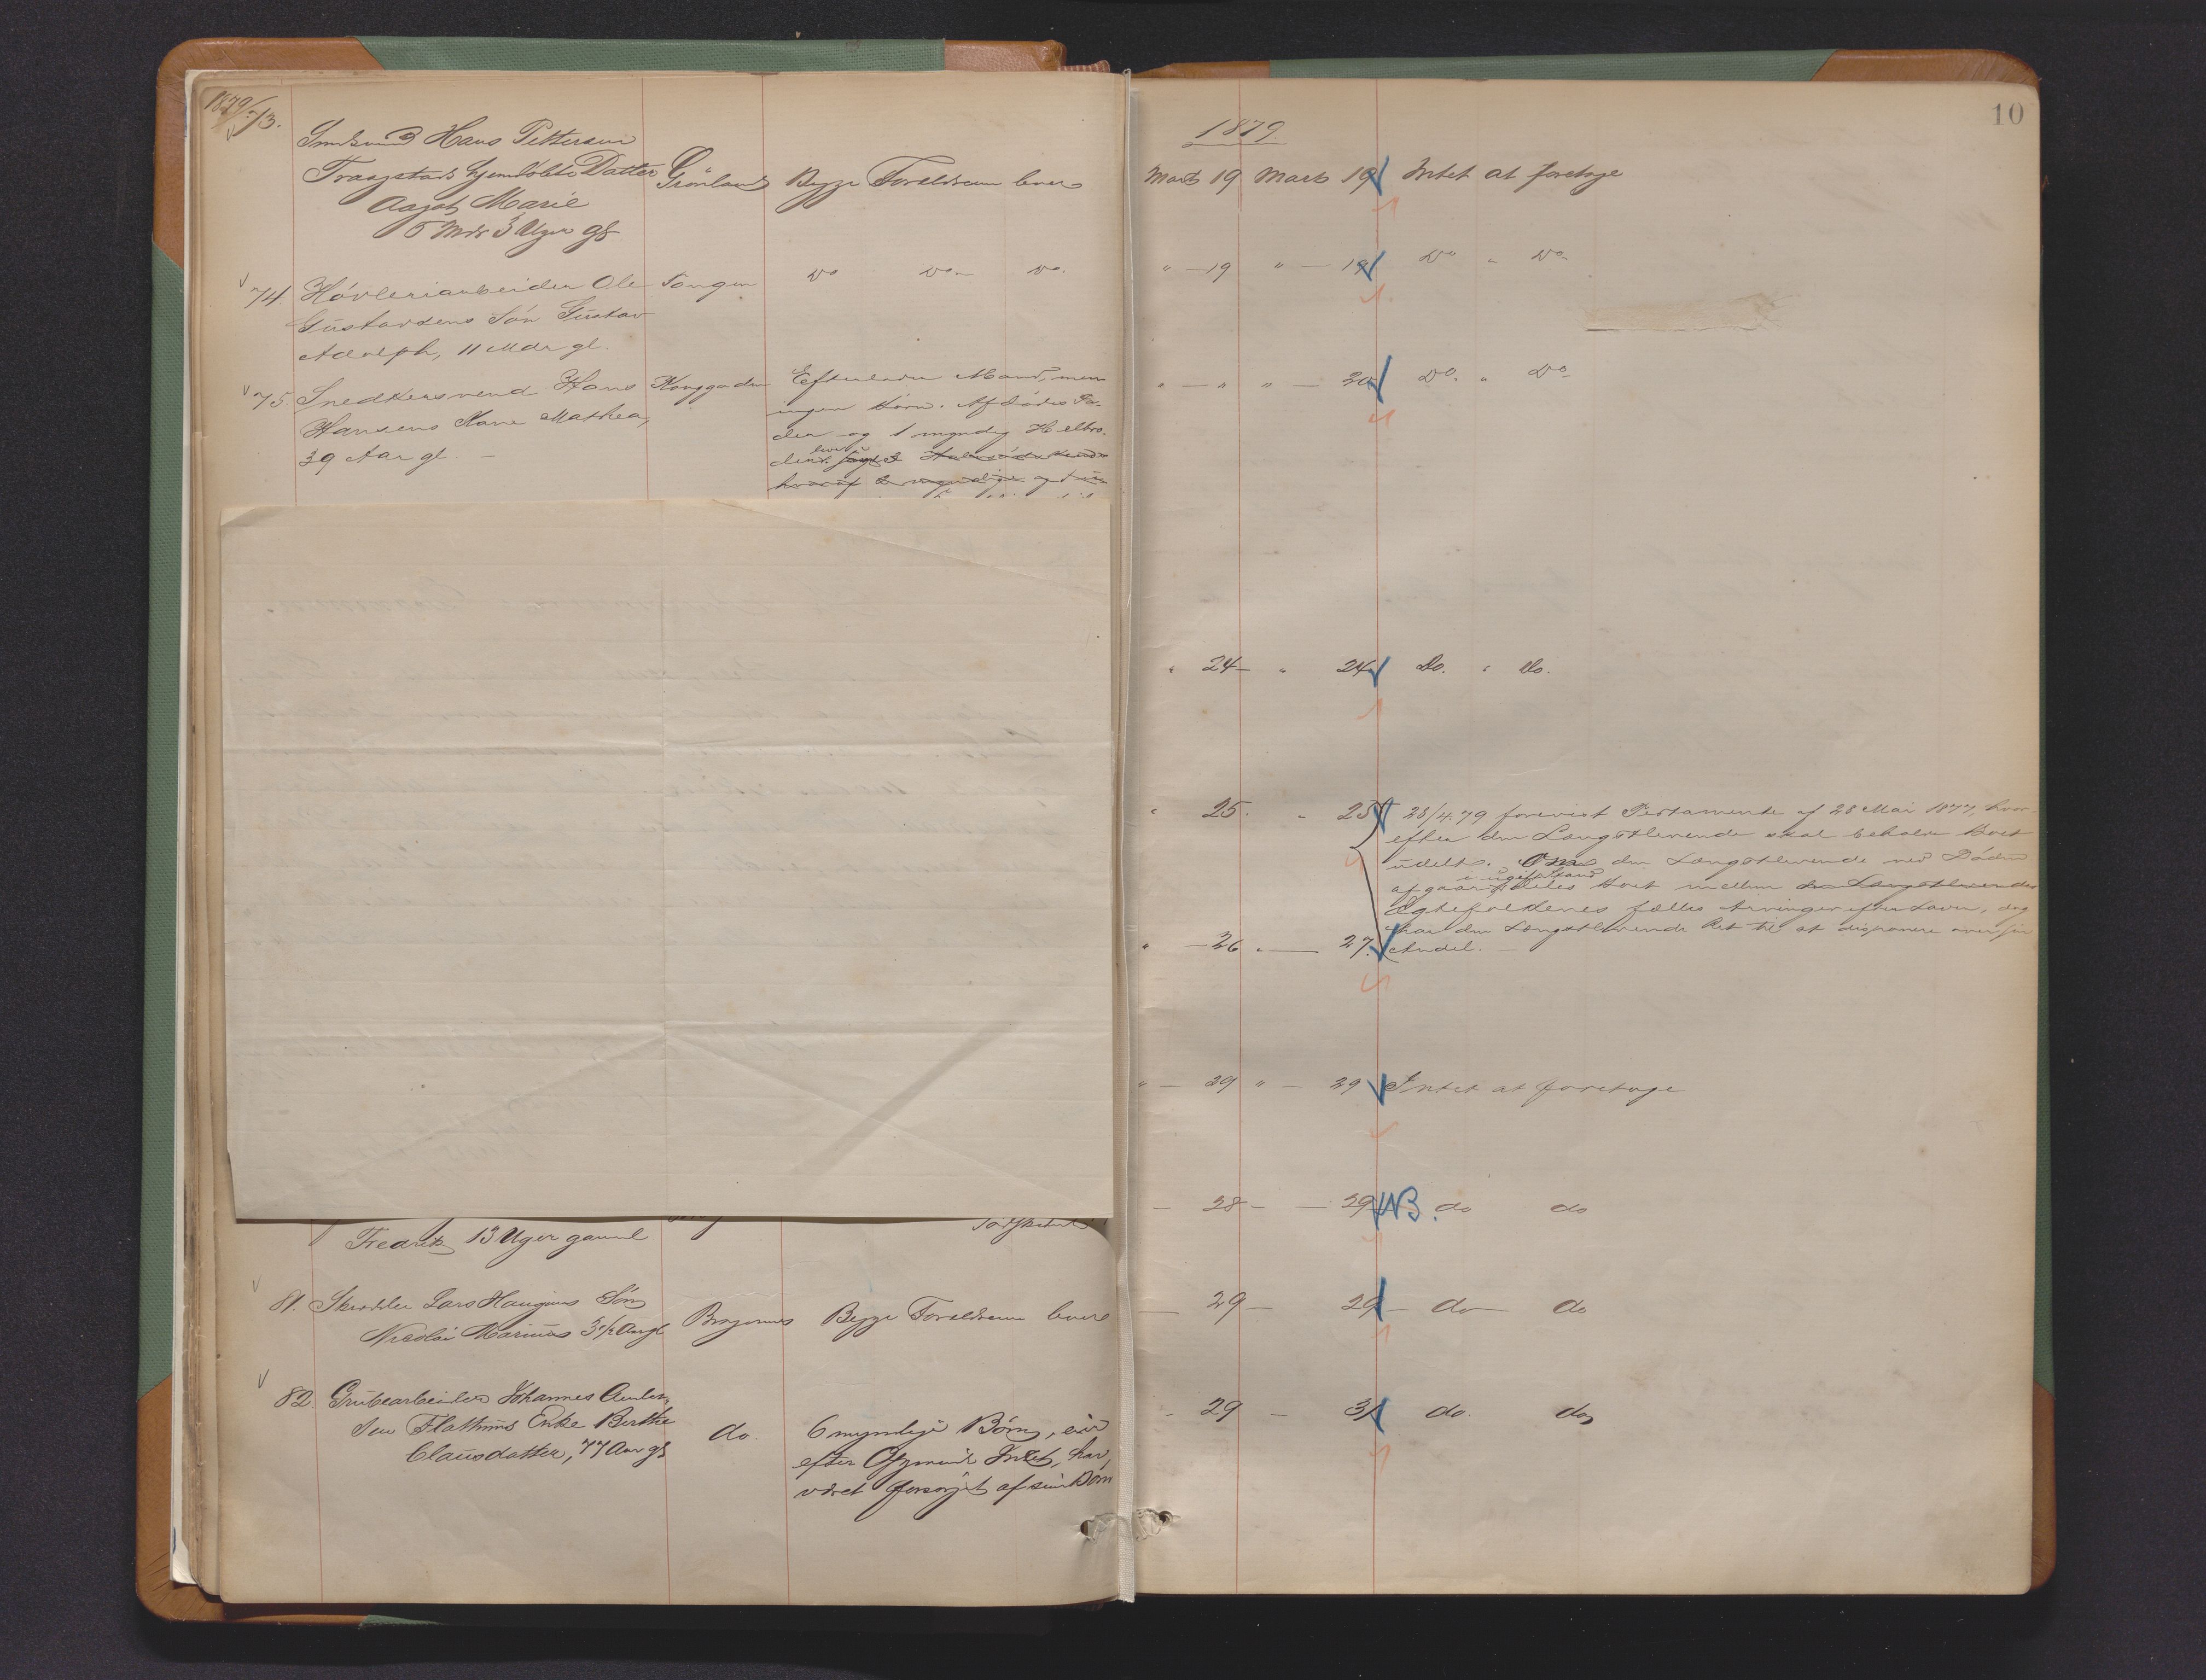 1879/73.
Smedsvend Hans Pettersen
Traagstads hjemdøbte Datter Grönland Begge Forældrene lever
Aagot Marie
5 Mdr 3 Uger gl
74. Hövleriarbeider Ole Tangen Do Do Do.
Gustavsens Sön Gustav
Adolph, 11 Mdr gl.
75. Snedkersvend Hans Konggaden Efterlader Mand, men
Hansens Kone Mathea, ingen Börn. Afdödes Fa-
39 Aar gl. – der og 1 myndig Helbro-
der lever
Fredrik 13 Uger gammel
81. Skrædder Lars Haugens Sön
Nicolai Marinus 3 1/2 Aar gl Bragernes Begge Forældrene lever
82. Grubearbeider Johannes
Flattums Enke Berthe do. 6 myndige Börn, eier
Clausdatter, 77 Aar gl efter Opgivende Intet, har
været forsörjet af sine Börn
10
1879
Marts 19 Marts 19 Intet at foretage
" – 19 " – 19 Do " Do
" – " " – 20 Do. " Do
" 24 – " 24 Do. " Do.
" 25. " 25 28/4.79 forevist Testamente af 28 Mai 1877, hvor-
efter den Længstlevende skal beholde Boet
udelt. Om den Længstlevende ved Döden
afgaar i ugift Stand deles Boet mellem den Længstlevendes
Ægtefolkenes fælles Arvinger efter Loven, dog
har den Længstlevende Ret til at disponere over sin
" – 26 " – 27. Andel. –
" – 29 " – 29 Intet at foretage
– 28 – – 29 NB. do do
– 29 – 29 – do do
– 29 – 31 do. do